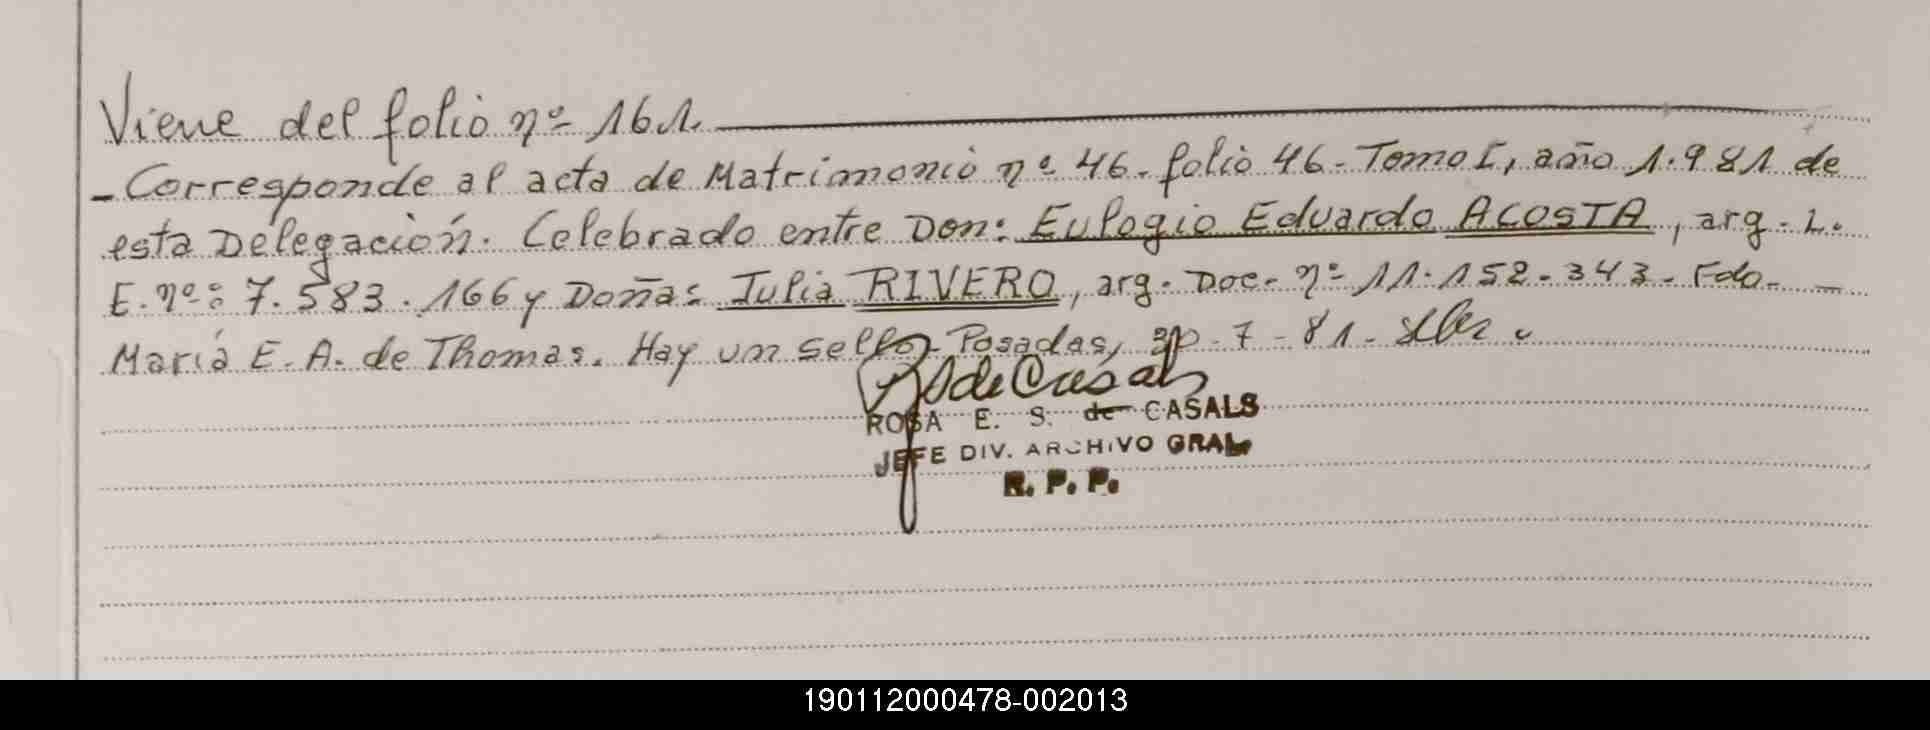 Viene del folio nº 161.
- Corresponde al acta de Matrimonio nº 46. folio 46 - Tomo I, año 1.981 de
esta Delegación. Celebrado entre Don: Eulogio Eduardo ACOSTA, arg. L.
E. nº: 7.583.166 y Doña: Julia RIVERO, arg. Doc. nº 11.152.343 - Fdo. -
María E. A. de Thomas. Hay un sello - Posadas, 30 - 7 - 81 -
R S de Casals
ROSA E. S. de CASALS
JEFE DIV. ARCHIVO GRAL.
R. P. P.
190112000478-002013